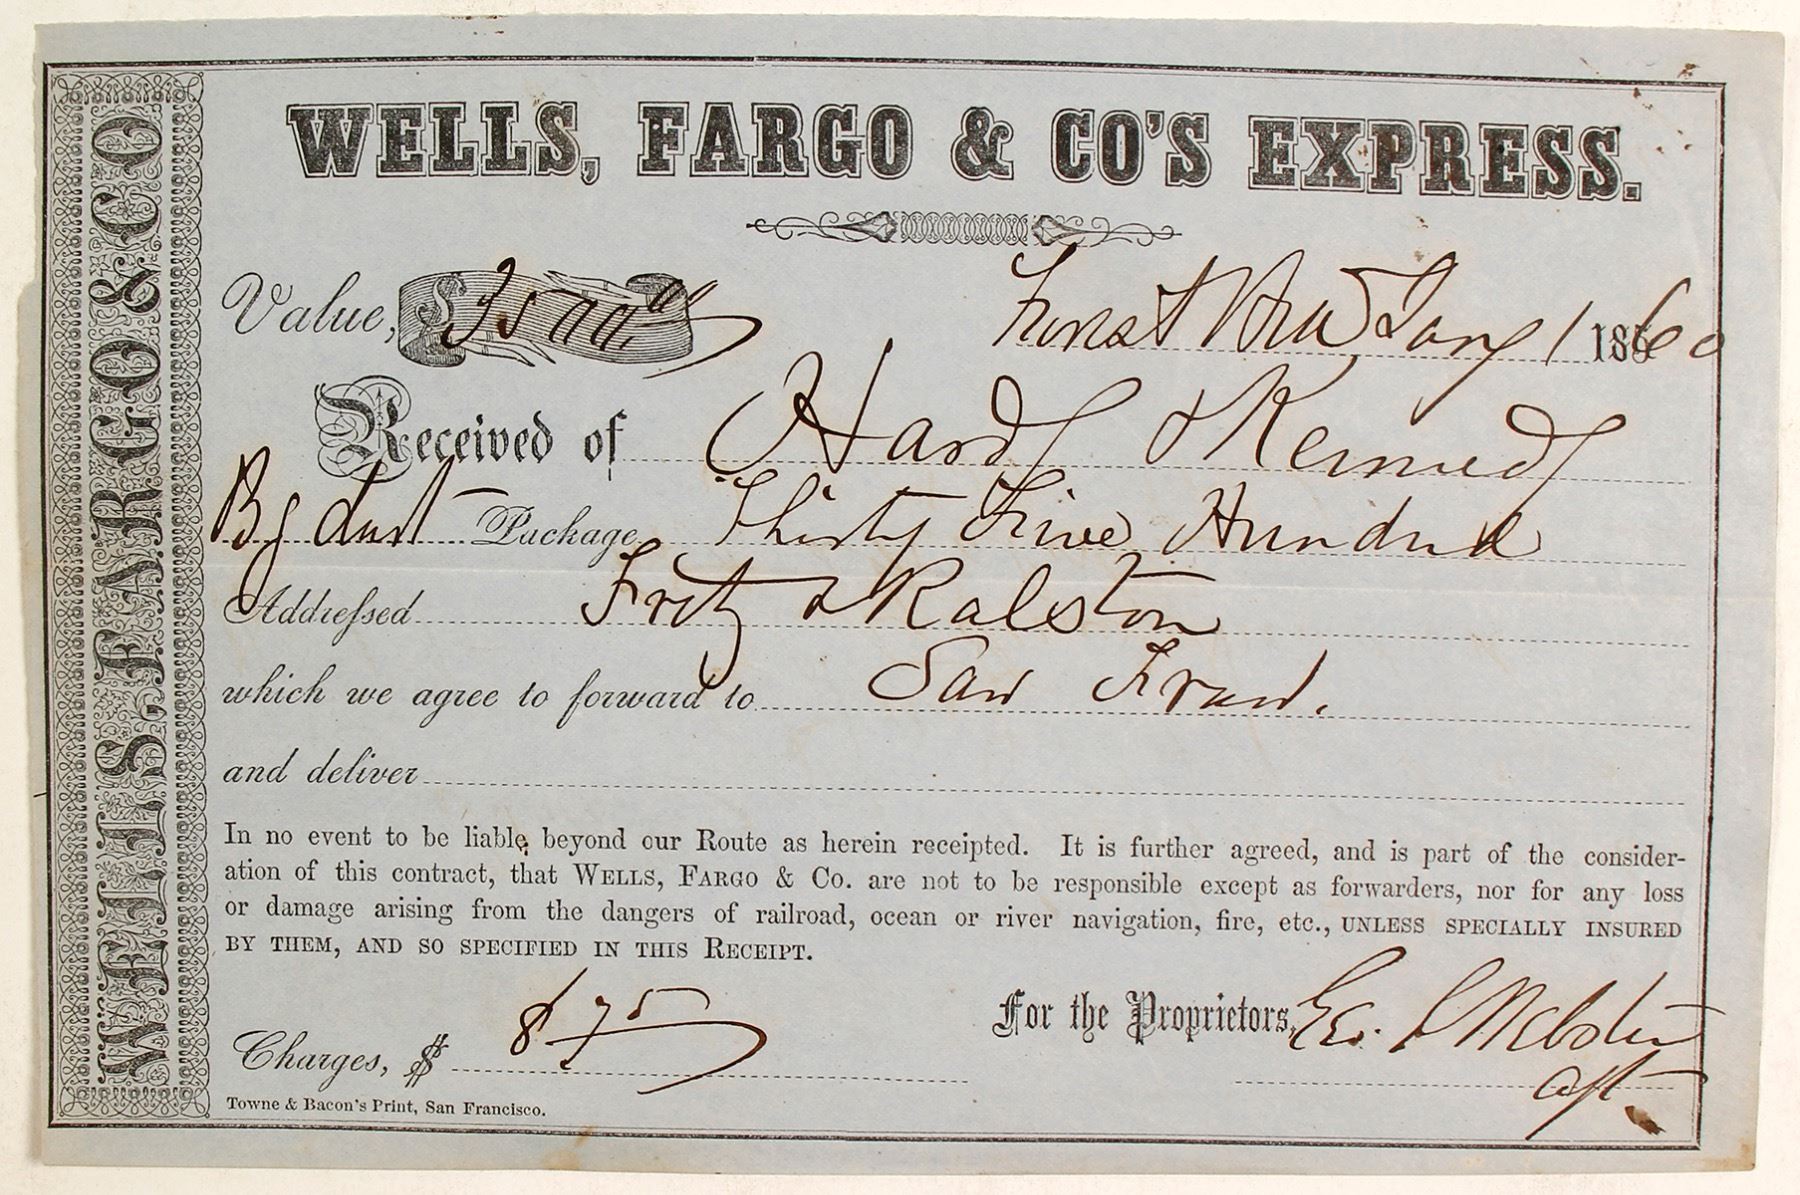 WELLS, FARGO & CO'S EXPRESS.
WELLS, FARGO & CO
Value, $ 3500 00
Forest Hill Jany 1 1860
Received of Hardy & Kennedy
Bg dust Package Thirty Five Hundred
Addressed Fretz & Ralston
which we agree to forward to San Fran.
and deliver
In no event to be liable beyond our Route as herein receipted. It is further agreed, and is part of the consider-
ation of this contract, that WELLS, FARGO & Co. are not to be responsible except as forwarders, nor for any loss
or damage arising from the dangers of railroad, ocean or river navigation, fire, etc., UNLESS SPECIALLY INSURED
BY THEM, AND SO SPECIFIED IN THIS RECEIPT.
For the Proprietors, Geo. Webster
Charges, $ 8 75
Agt
Towne & Bacon's Print, San Francisco.